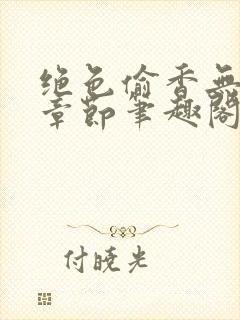 绝色偷香无
章節笔趣阁
付晓光